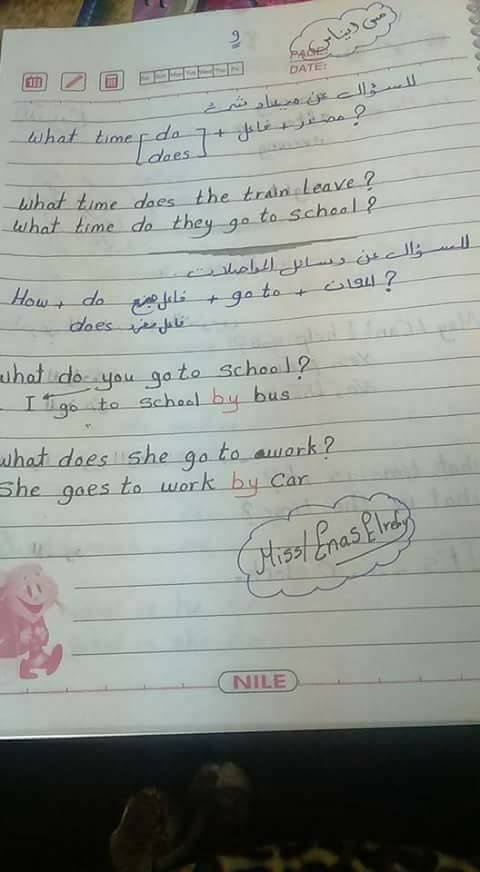 و
مس ايناس
PAGE:
DATE:
Sat Sun Mon Tue Wed Thu Fri
للسؤال عن ميعاد شئ
what time [do does] + فاعل + مصدر ?
what time does the train leave?
what time do they go to school?
للسؤال عن وسائل المواصلات
How + do فاعل جمع + go to + المكان ?
does فاعل مفرد
what do you go to school?
I go to school by bus
what does she go to work?
She goes to work by car
Miss/Enas Elreby
NILE